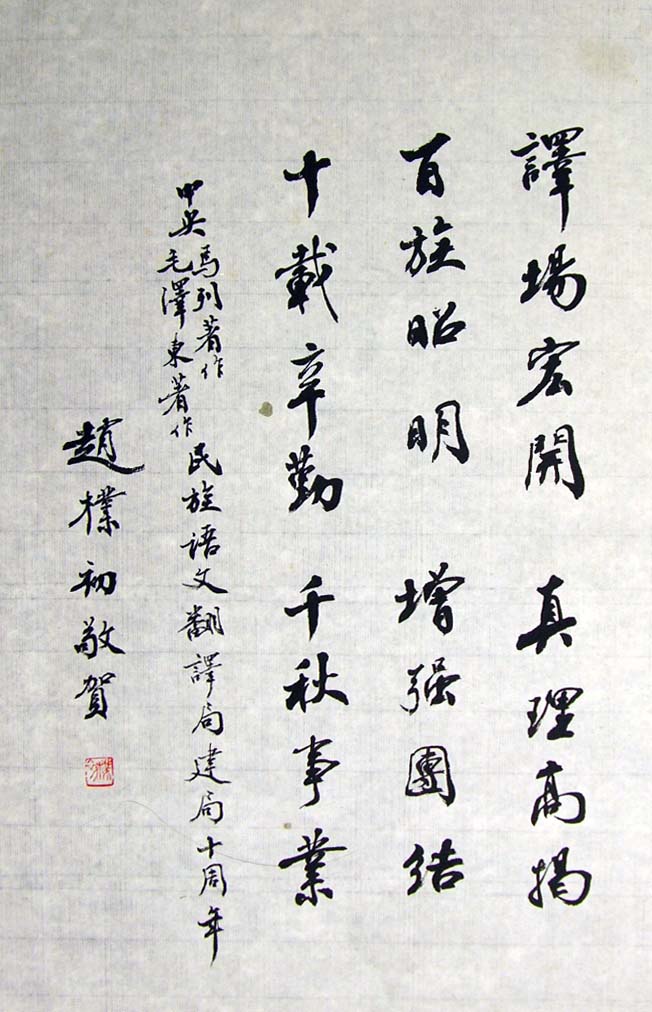 譯場宏開 真理高揭
百族昭明 增强團结
十載辛勤 千秋事業
中央馬列著作毛澤東著作民族语文翻譯局建局十周年
趙樸初敬賀